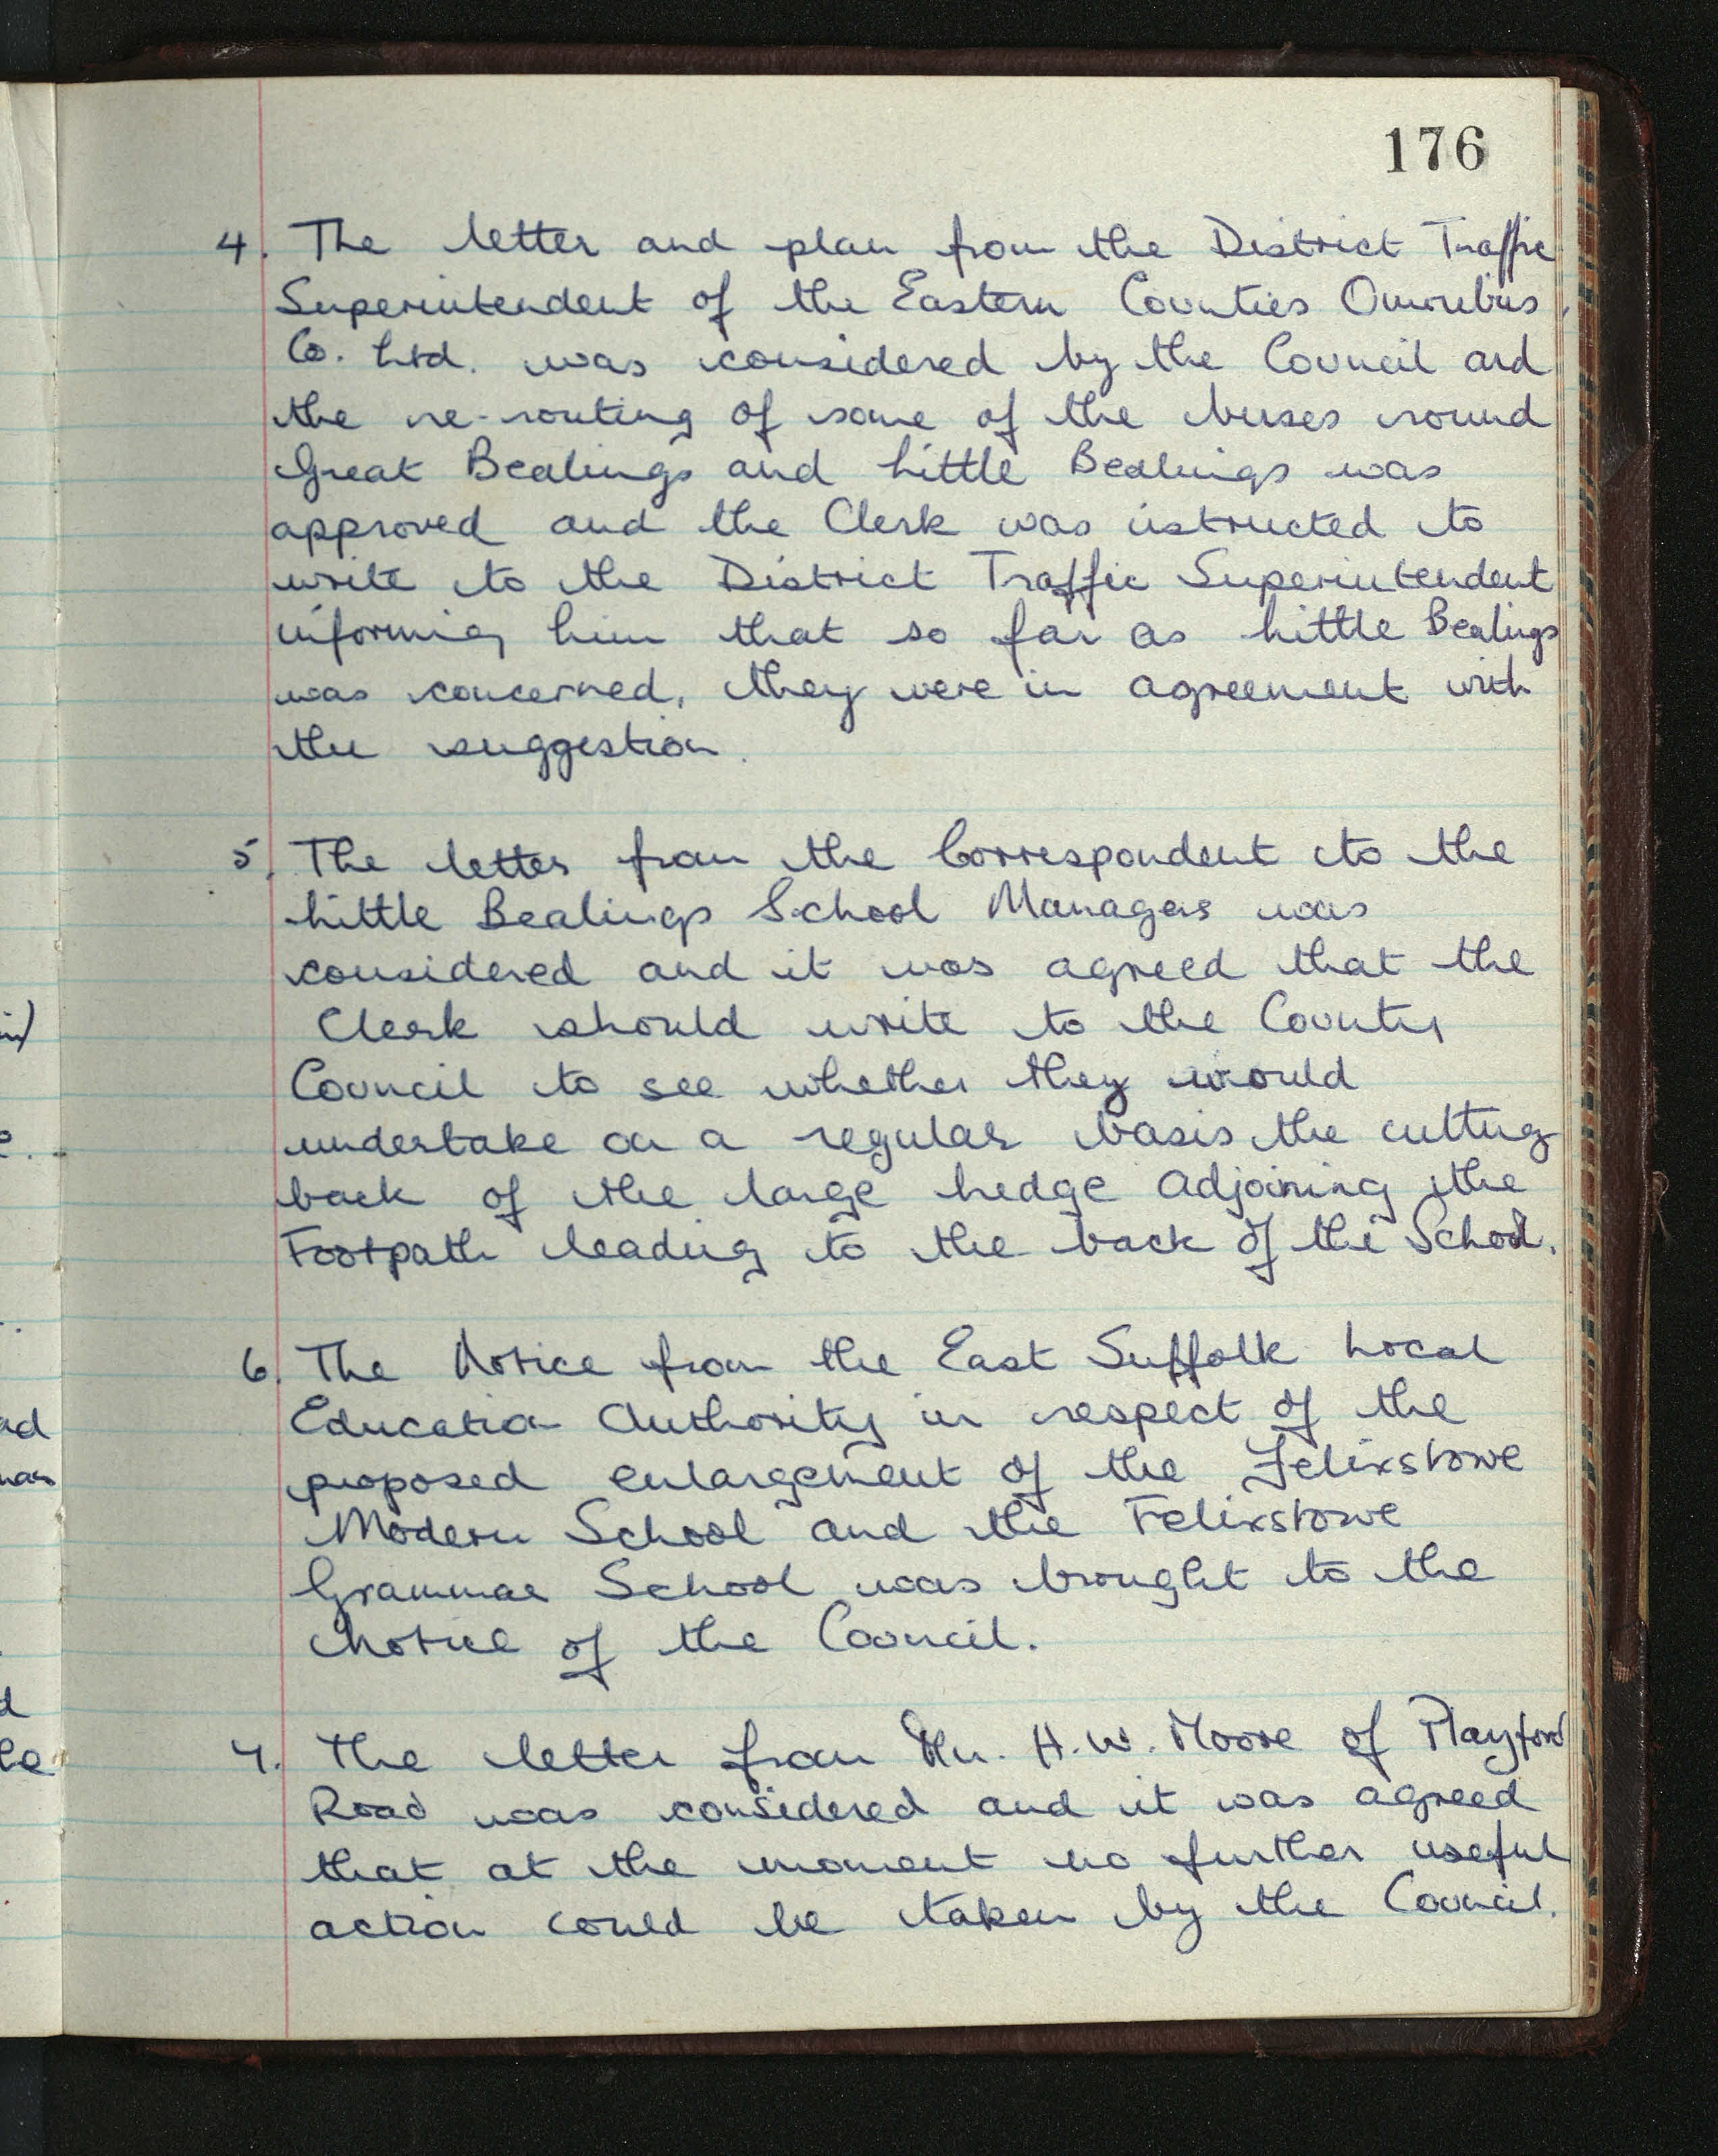 176
4. The letter and plan from the District Traffic
Superintendent of the Eastern Counties Omnibus
Co. Ltd. was considered by the Council and
the re-routing of some of the buses round
Great Bealings and Little Bealings was
approved and the Clerk was instructed to
write to the District Traffic Superintendent
informing him that so far as Little Bealings
was concerned, they were in agreement with
the suggestion.
5. The letter from the Correspondent to the
Little Bealings School Managers was
considered and it was agreed that the
Clerk should write to the County
Council to see whether they would
undertake on a regular basis the cutting
back of the large hedge adjoining the
Footpath leading to the back of the School.
6. The Notice from the East Suffolk Local
Education Authority in respect of the
proposed enlargement of the Felixstowe
Modern School and the Felixstowe
Grammar School was brought to the
Notice of the Council.
7. The letter from Mr. H. W. Moore of Playford
Road was considered and it was agreed
that at the moment no further useful
action could be taken by the Council.